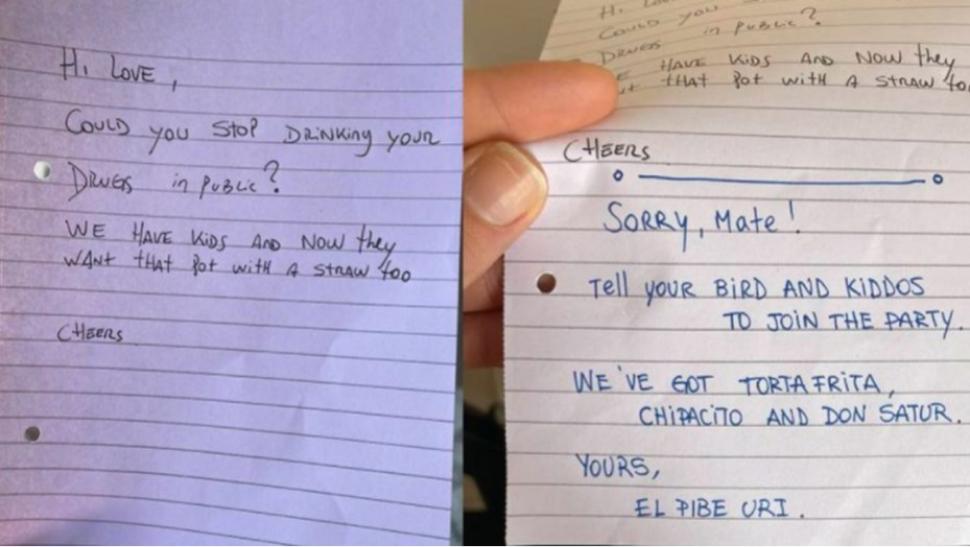 Hi LOVE,
COULD you StoP DRiNKiNg yOUR
DRUGS in PUBLiC?
WE HAVE KiDS AND NOW they
WANt tHAT Pot witH A StRAW too
CHEERS
Hi L
COULD you
DRUGS in PUBLiC?
WE HAVE KiDS AND NOW they
tHAT Pot witH A StRAW too
CHEERS
SORRy, Mate!
TEll yOUR BiRD AND KiDDOS
TO JOiN THE PARTY.
WE'VE GOT TORTAFRITA,
CHiPACiTO AND DON SATUR.
YOURS,
EL PIBE URI.